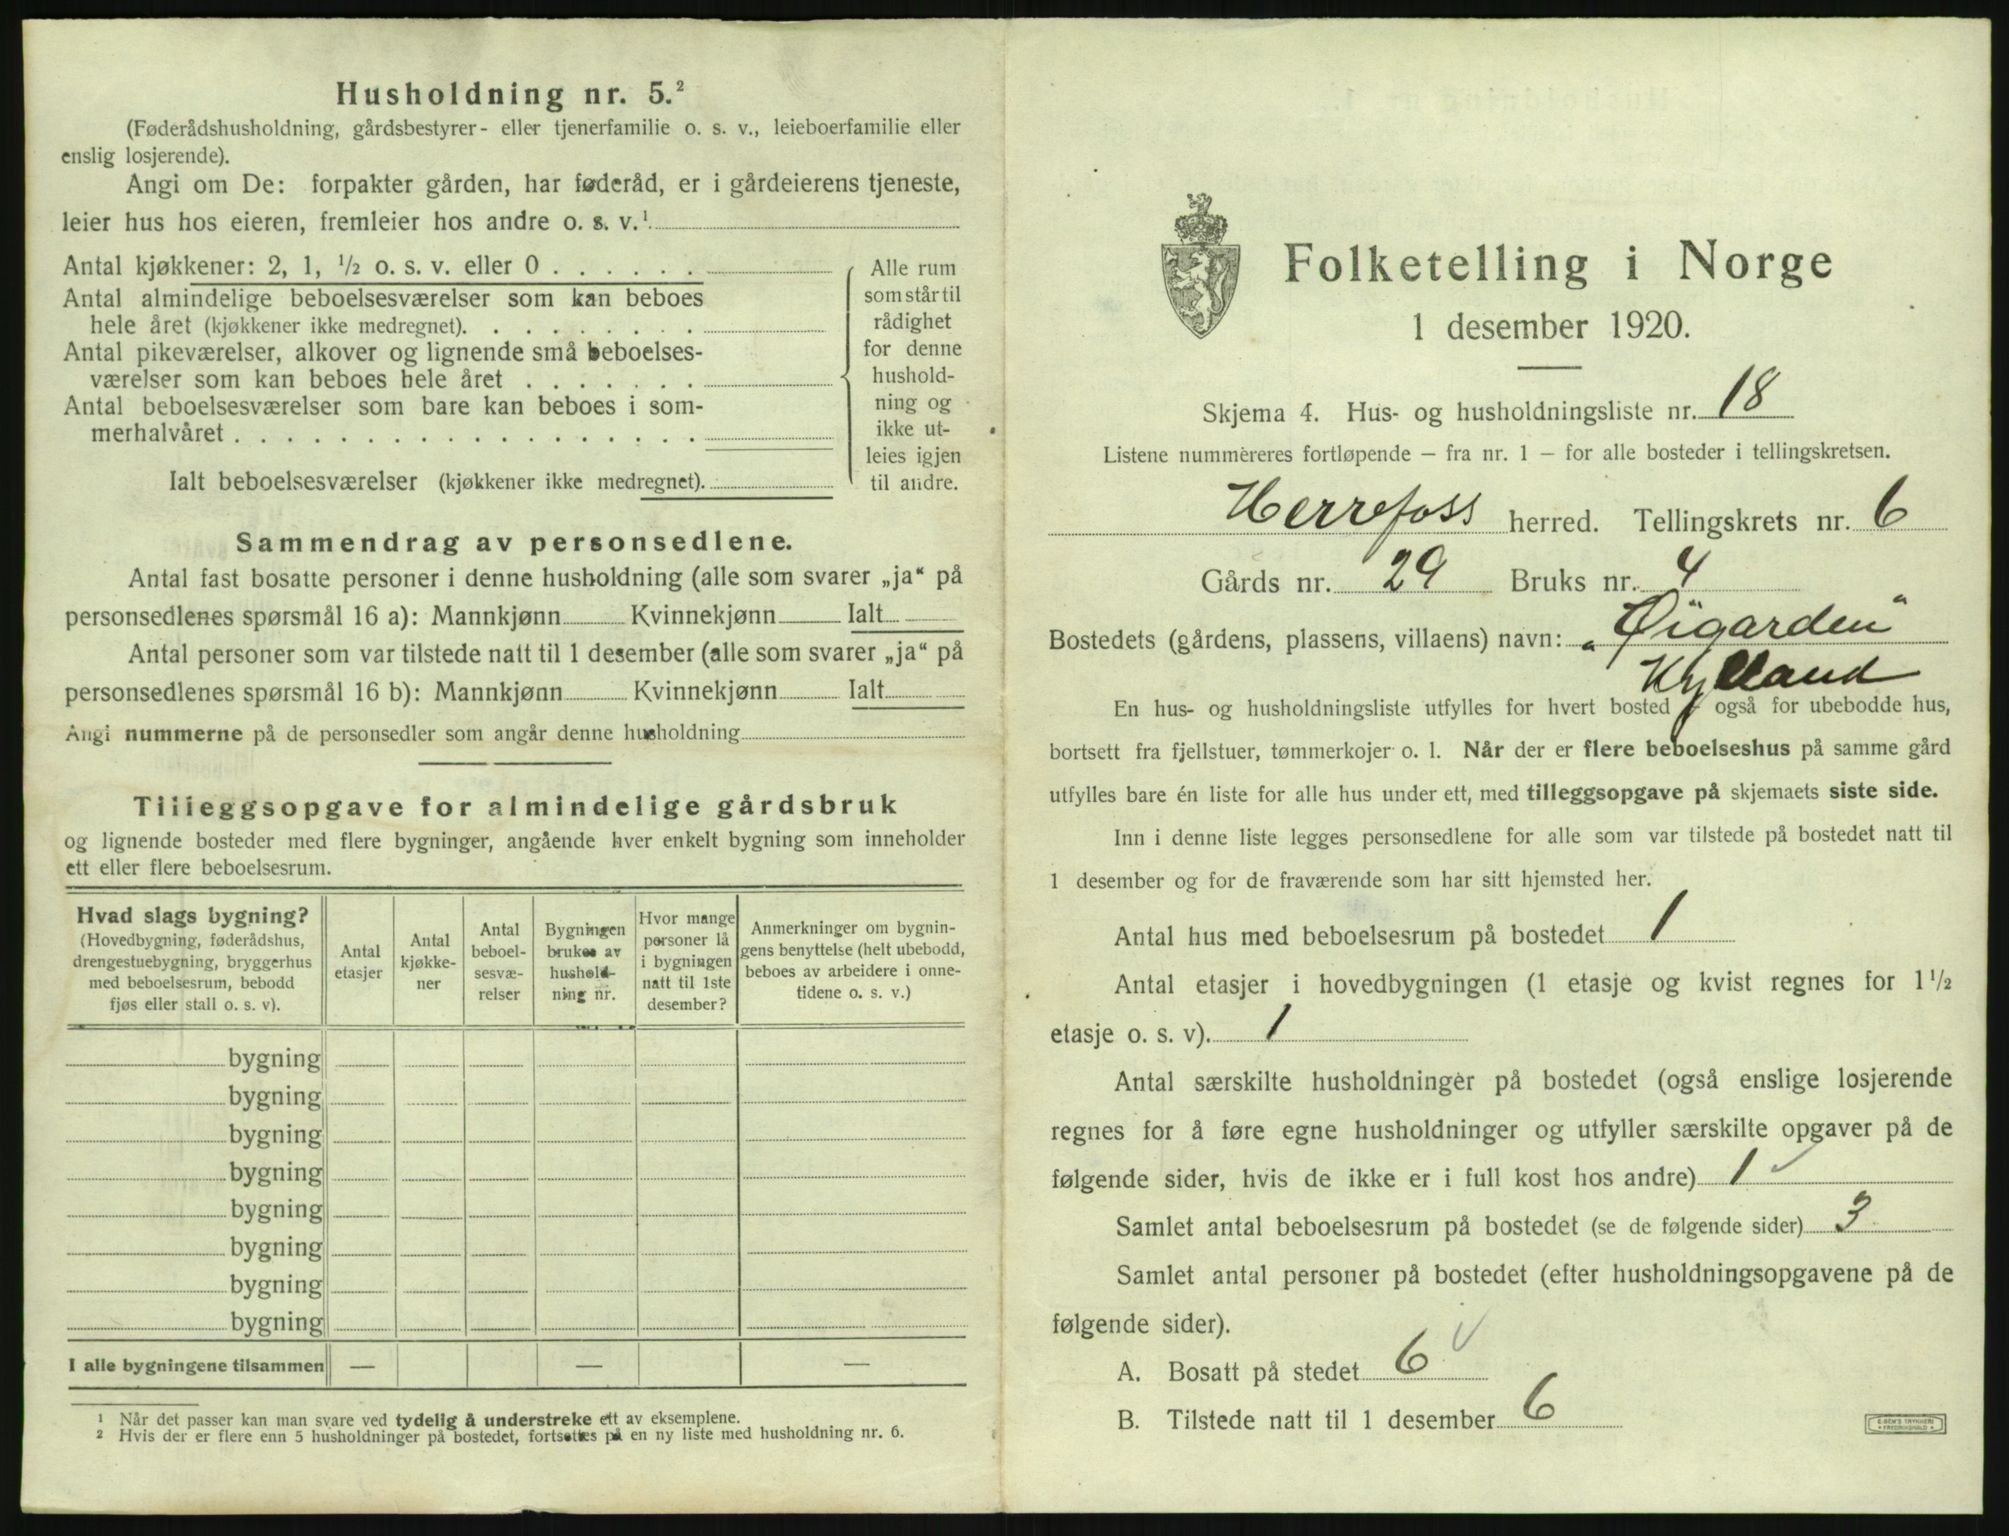 Husholdning nr. 5.²
(Føderådshusholdning, gårdsbestyrer- eller tjenerfamilie o. s. v., leieboerfamilie eller
enslig losjerende).
Angi om De: forpakter gården, har føderåd, er i gårdeierens tjeneste,
leier hus hos eieren, fremleier hos andre o. s. v.¹
Antal kjøkkener: 2, 1, ½ o. s. v. eller 0 . . . . . .
Antal almindelige beboelsesværelser som kan beboes
hele året (kjøkkener ikke medregnet). . . . . . . . .
Antal pikeværelser, alkover og lignende små beboelses-
værelser som kan beboes hele året . . . . . . .
Antal beboelsesværelser som bare kan beboes i som-
merhalvåret . . . . . . . . . . . . . . . . . .
Ialt beboelsesværelser (kjøkkener ikke medregnet).
Alle rum
som står til
rådighet
for denne
hushold-
ning og
ikke ut-
leies igjen
til andre.
Sammendrag av personsedlene.
Antal fast bosatte personer i denne husholdning (alle som svarer „ja“ på
personsedlenes spørsmål 16 a): Mannkjønn Kvinnekjønn Ialt
Antal personer som var tilstede natt til 1 desember (alle som svarer „ja“ på
personsedlenes spørsmål 16 b): Mannkjønn Kvinnekjønn Ialt
Angi nummerne på de personsedler som angår denne husholdning
Tilleggsopgave for almindelige gårdsbruk
og lignende bosteder med flere bygninger, angående hver enkelt bygning som inneholder
ett eller flere beboelsesrum.
Hvad slags bygning?
(Hovedbygning, føderådshus,
drengestuebygning, bryggerhus
med beboelsesrum, bebodd
fjøs eller stall o. s. v).
Antal
etasjer
Antal
kjøkke-
ner
Antal
beboel-
sesvæ-
relser
Bygningen
brukes av
hushold-
ning nr.
Hvor mange
personer lå
i bygningen
natt til 1ste
desember?
Anmerkninger om bygnin-
gens benyttelse (helt ubebodd,
beboes av arbeidere i onne-
tidene o. s. v.)
bygning
bygning
bygning
bygning
bygning
bygning
bygning
bygning
I alle bygningene tilsammen — — —
¹ Når det passer kan man svare ved tydelig å understreke ett av eksemplene.
² Hvis der er flere enn 5 husholdninger på bostedet, fortsettes på en ny liste med husholdning nr. 6.
Folketelling i Norge
1 desember 1920.
Skjema 4. Hus- og husholdningsliste nr. 18
Listene nummereres fortløpende – fra nr. 1 – for alle bosteder i tellingskretsen.
Herrefoss herred. Tellingskrets nr. 6
Gårds nr. 29 Bruks nr. 4
Bostedets (gårdens, plassens, villaens) navn: „Øigarden“
Kylland
En hus- og husholdningsliste utfylles for hvert bosted, også for ubebodde hus,
bortsett fra fjellstuer, tømmerkojer o. l. Når der er flere beboelseshus på samme gård
utfylles bare én liste for alle hus under ett, med tilleggsopgave på skjemaets siste side.
Inn i denne liste legges personsedlene for alle som var tilstede på bostedet natt til
1 desember og for de fraværende som har sitt hjemsted her.
Antal hus med beboelsesrum på bostedet 1
Antal etasjer i hovedbygningen (1 etasje og kvist regnes for 1½
etasje o. s. v). 1
Antal særskilte husholdninger på bostedet (også enslige losjerende
regnes for å føre egne husholdninger og utfyller særskilte opgaver på de
følgende sider, hvis de ikke er i full kost hos andre) 1
Samlet antal beboelsesrum på bostedet (se de følgende sider) 3
Samlet antal personer på bostedet (efter husholdningsopgavene på de
følgende sider).
A. Bosatt på stedet 6
B. Tilstede natt til 1 desember 6